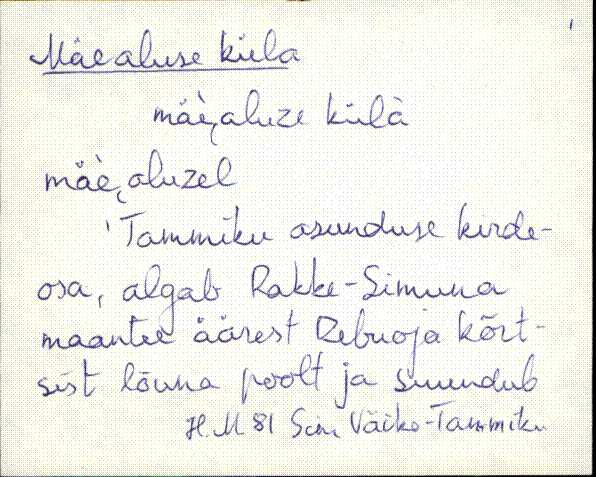 1
Mäealuse küla
mäè,aluze külà
mäè,aluzel
'Tammiku asunduse kirde-
osa, algab Rakke-Simuna
maantee äärest Rebuoja kõrt-
sist lõuna poolt ja suundub
H. M 81 Sim, Väike-Tammiku